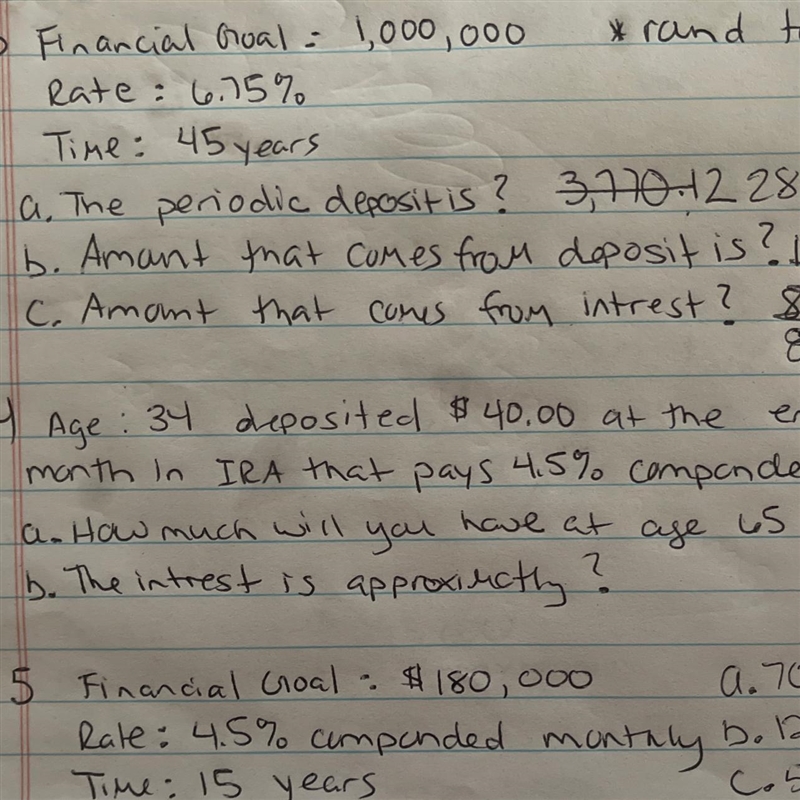 Financial Goal = 1,000,000 * rand
Rate : 6.75%
Time : 45 years
a. The periodic deposit is? 3,770.12 28
b. Amant that comes from deposit is?
c. Amount that coms from intrest? 8
8
Age : 34 deposited $40.00 at the
month in IRA that pays 4.5% compende
a. How much will you have at age 65
b. The intrest is approximctly?
5 Financial Goal : $180,000 a. 70
Rate : 4.5% compended monthly b. 12
Time : 15 years c. 5